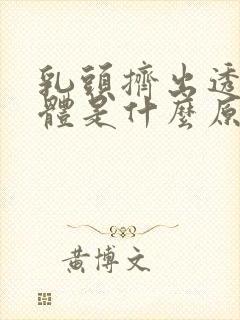 乳頭擠出透
體是什麼原
黃博文